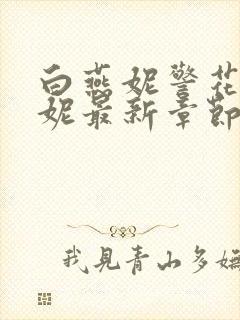 白燕妮警花
妮最新章節
我見青山多嫵